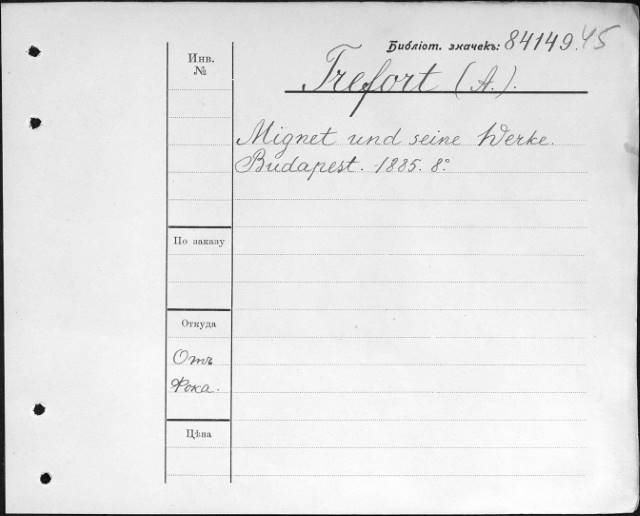 Библіот. значекъ: 84149.45
Инв.
№
Trefort (A.).
Mignet und seine Werke.
Budapest. 1885. 8°
По заказу
Откуда
Отъ
Фока.
Цѣна